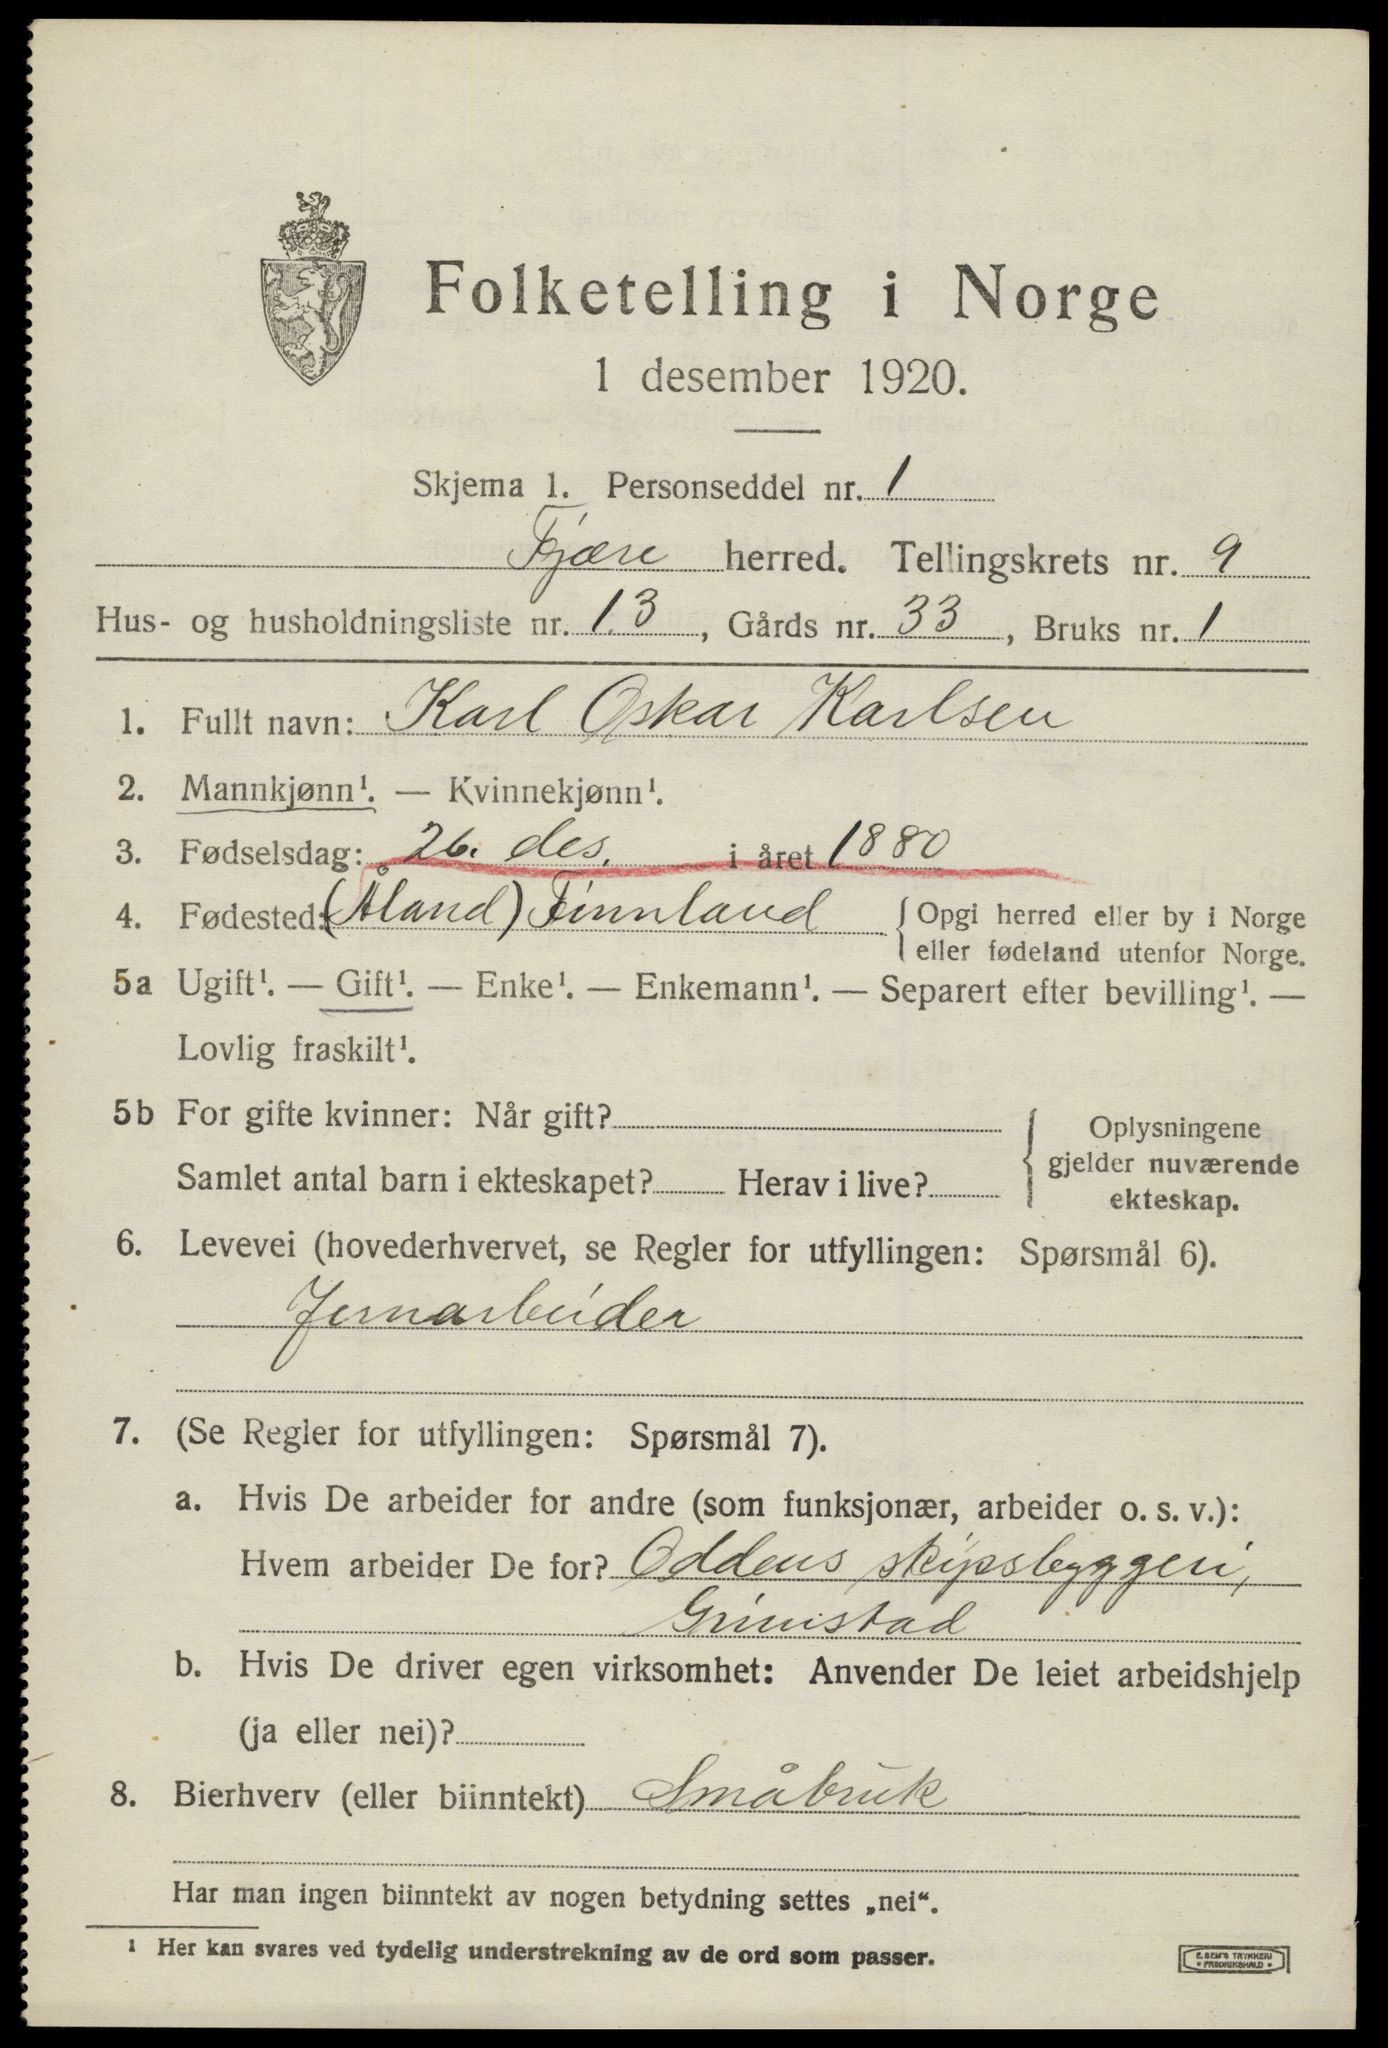 Folketelling i Norge
1 desember 1920.
Skjema 1. Personseddel nr. 1
Fjære herred. Tellingskrets nr. 9
Hus- og husholdningsliste nr. 13, Gårds nr. 33, Bruks nr. 1
1. Fullt navn: Karl Oskar Karlsen
2. Mannkjønn¹. — Kvinnekjønn¹.
3. Fødselsdag: 26. des. i året 1880
4. Fødested: (Åland) Finnland { Opgi herred eller by i Norge
eller fødeland utenfor Norge.
5a Ugift¹. — Gift¹. — Enke¹. — Enkemann¹. — Separert efter bevilling¹. —
Lovlig fraskilt¹.
5b For gifte kvinner: Når gift?
Samlet antal barn i ekteskapet? Herav i live?
{ Oplysningene
gjelder nuværende
ekteskap.
6. Levevei (hovederhvervet, se Regler for utfyllingen: Spørsmål 6).
Jernarbeider
7. (Se Regler for utfyllingen: Spørsmål 7).
a. Hvis De arbeider for andre (som funksjonær, arbeider o. s. v.):
Hvem arbeider De for? Oddens skipsbyggeri,
Grimstad
b. Hvis De driver egen virksomhet: Anvender De leiet arbeidshjelp
(ja eller nei)?
8. Bierhverv (eller biinntekt) Småbruk
Har man ingen biinntekt av nogen betydning settes „nei“.
¹ Her kan svares ved tydelig understrekning av de ord som passer.
E. SEM'S TRYKKERI
• FREDRIKSHALD •